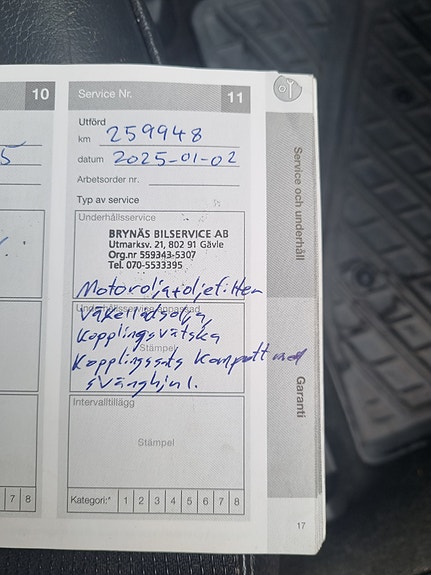 10
Service Nr. 11
Utförd
km 259948
datum 2025-01-02
Arbetsorder nr.
Typ av service
Underhållsservice
BRYNÄS BILSERVICE AB
Utmarksv. 21, 802 91 Gävle
Org.nr 559343-5307
Tel. 070-5533395
Motorolja+oljefilter
Underhållsservice anpassad
Växellådsolja,
Kopplingsvätska
Stämpel
Kopplingssats Komplett med
svänghjul.
Intervalltillägg
Stämpel
7 8
Kategori:* 1 2 3 4 5 6 7 8
Service och underhåll
Garanti
17